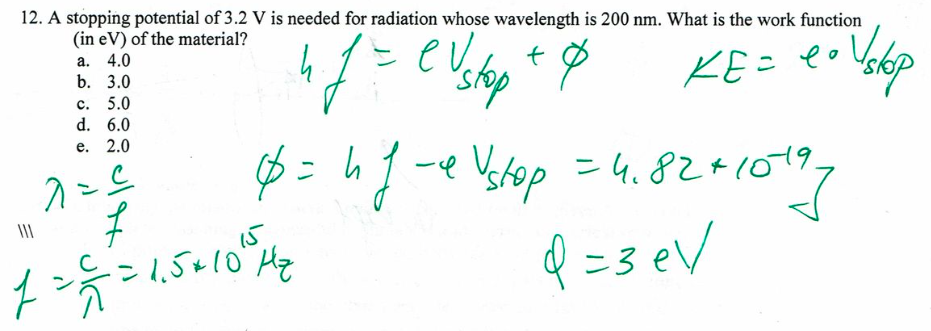 12. A stopping potential of 3.2 V is needed for radiation whose wavelength is 200 nm. What is the work function
(in eV) of the material?
a. 4.0
b. 3.0
c. 5.0
d. 6.0
e. 2.0
hf = eVstop + φ
KE = e∘Vstop
φ = hf - eVstop = 4.82*10^-19 J
λ = c/f
\\\
f = c/λ = 1.5*10^15 Hz
φ = 3 eV